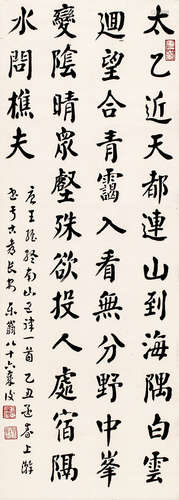 太乙近天都連山到海隅白雲
迴望合青靄入看無分野中峯
變陰晴眾壑殊欲投人處宿隔
水問樵夫
唐王維終南山五律一首乙丑 春上澣
書于古 長安 八十六叟